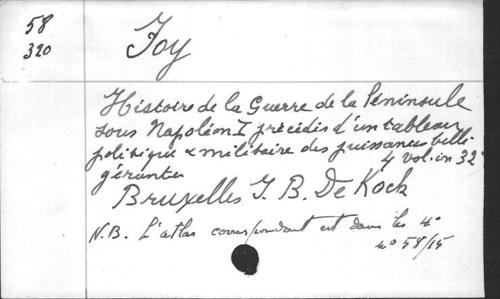 58
320
Foy
Histoire de la Guerre de la Péninsule
sous Napoléon I précédis d'un tableau
politique & militaire des puissances belli
gérantes 4 vol. in 32°
Bruxelles J. B. De Kock
N.B. L'atlas correspondant est dans les 4°
n° 58/15